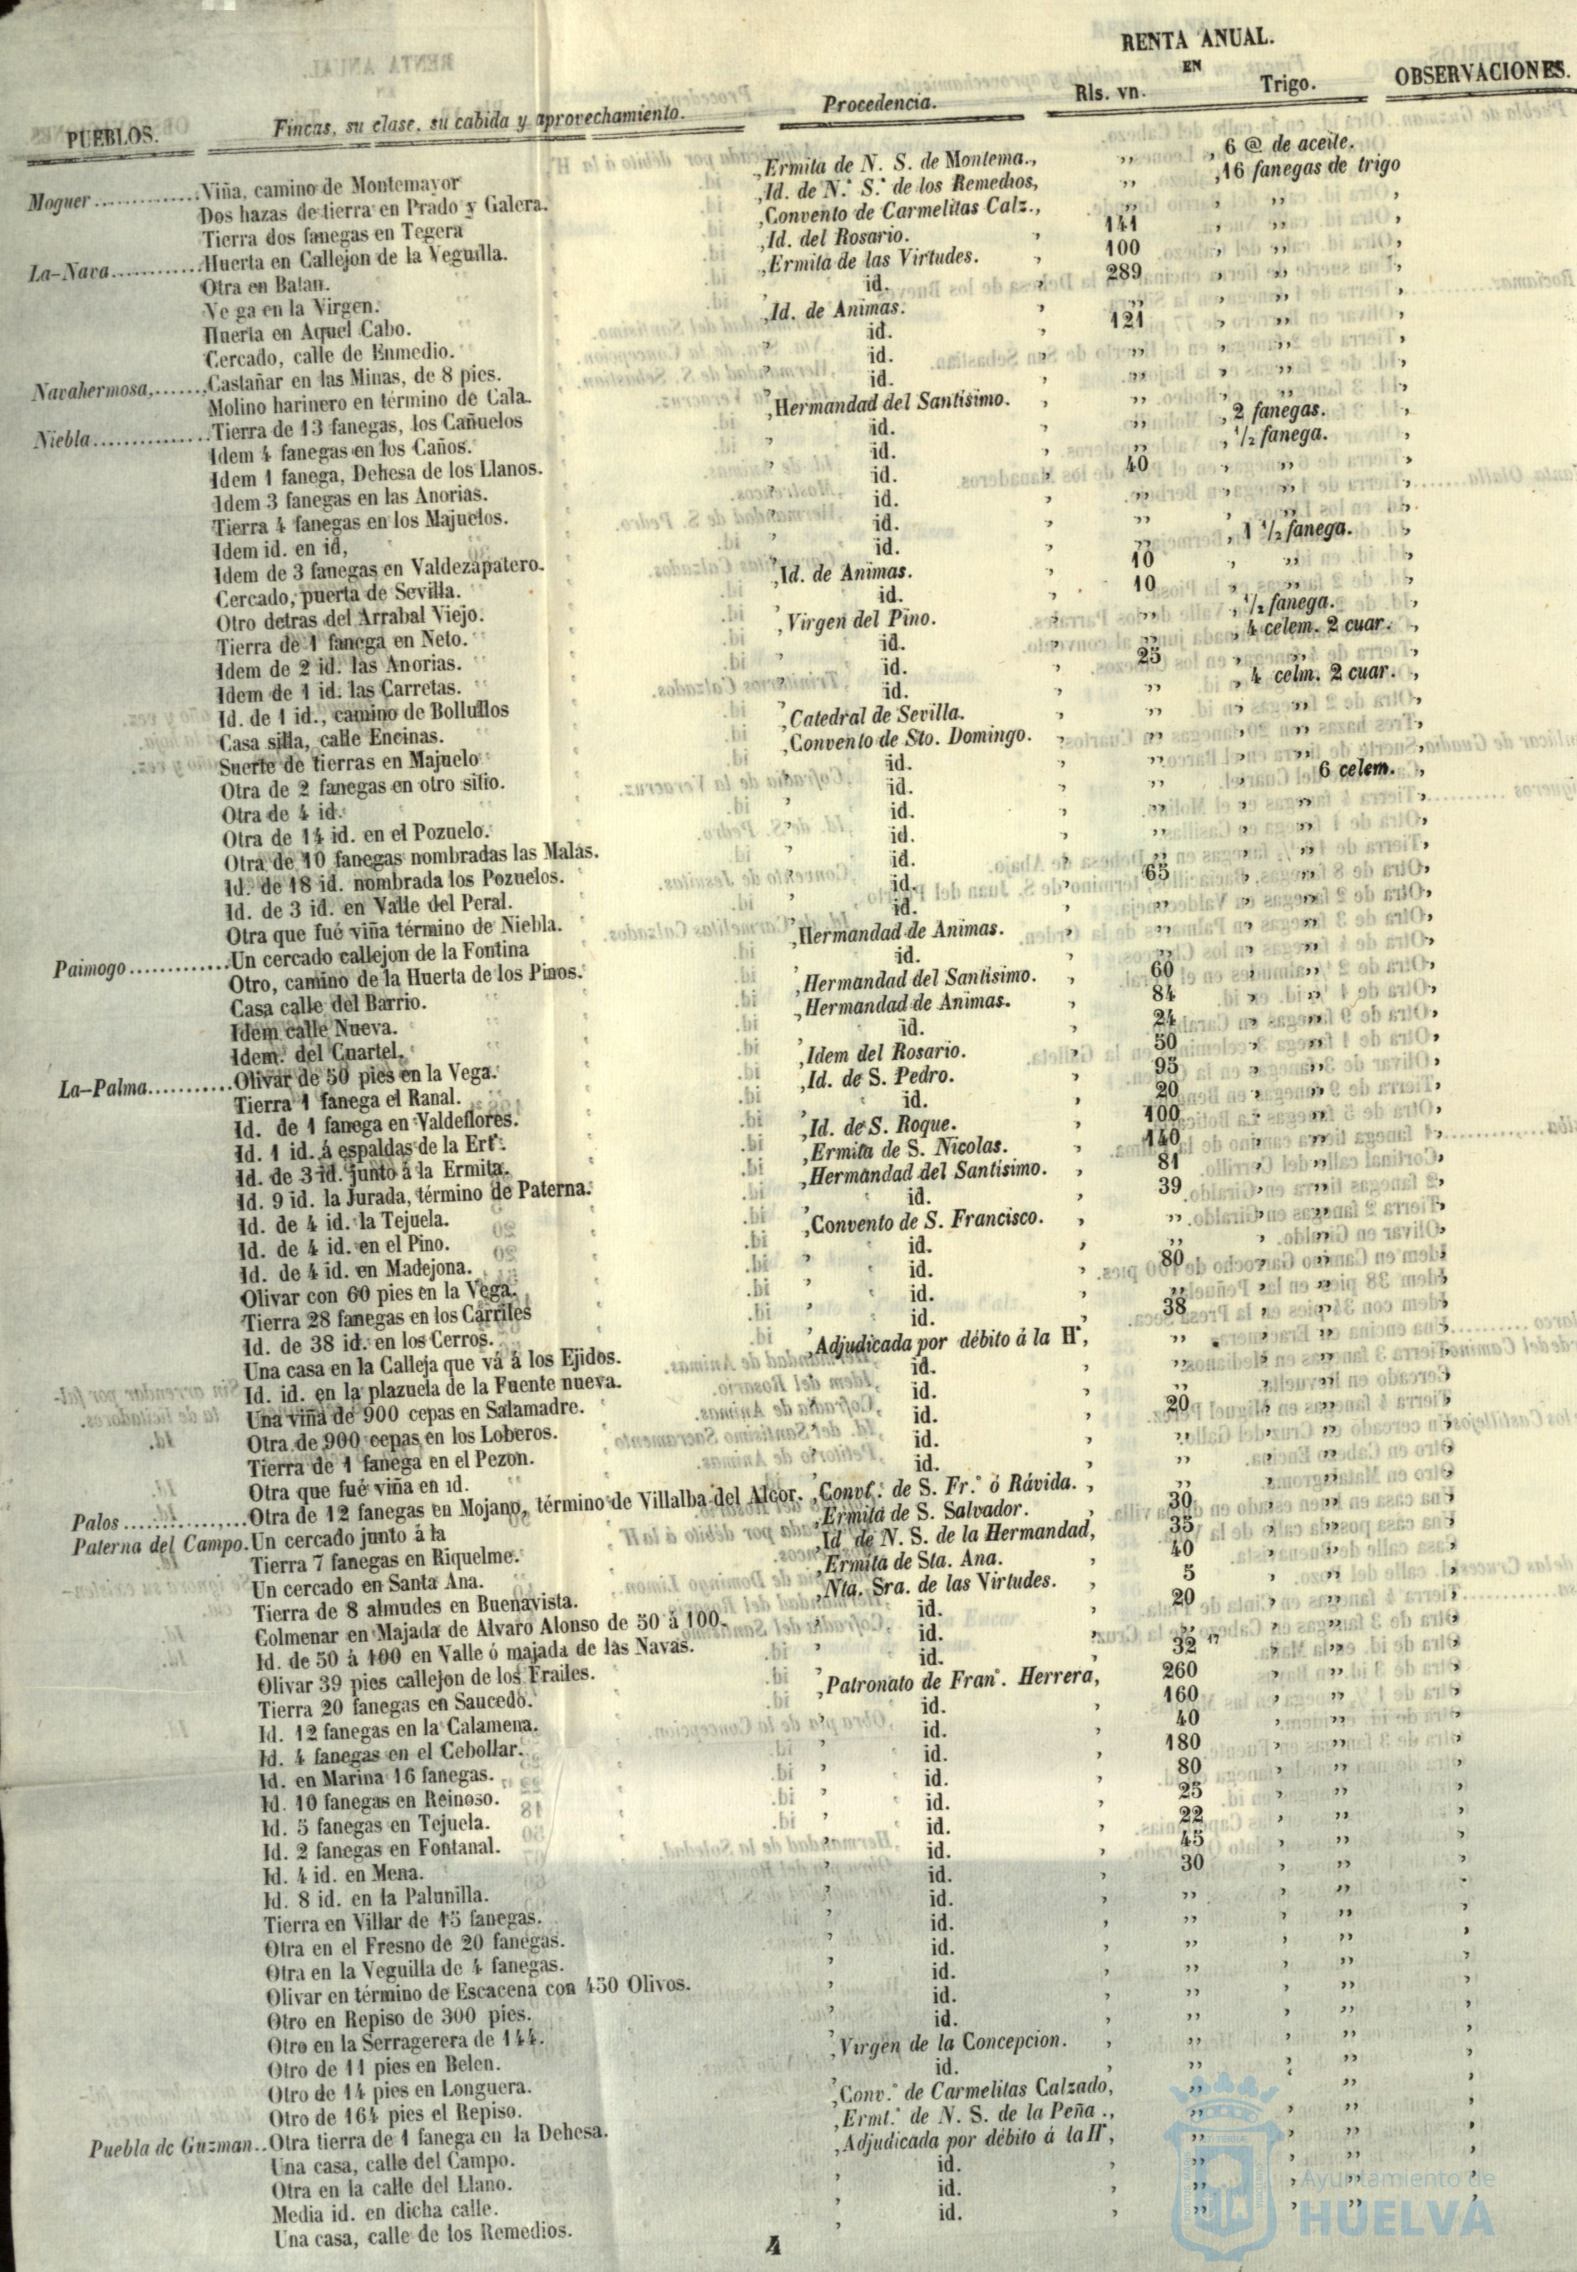 RENTA ANUAL.
EN
PUEBLOS. Fincas, su clase, su cabida y aprovechamiento. Procedencia. Rls. vn. Trigo. OBSERVACIONES.
Moguer.............Viña, camino de Montemayor ,Ermita de N. S. de Montema., ,, , 6 @ de aceite.
Dos hazas de tierra en Prado y Galera. ,Id. de N.ª S.ª de los Remedios, ,, ,16 fanegas de trigo
Tierra dos fanegas en Tegera ,Convento de Carmelitas Calz., ,, , ,, ,
La-Nava............Huerta en Callejon de la Veguilla. ,Id. del Rosario. , 141 , ,, ,
Otra en Batan. ,Ermita de las Virtudes. , 100 , ,, ,
Vega en la Virgen. id. , 289 , ,, ,
Huerta en Aquel Cabo. ,Id. de Animas. , ,, , ,, ,
Cercado, calle de Enmedio. , id. , 121 , ,, ,
Navahermosa,......,Castañar en las Minas, de 8 pies. , id. , ,, , ,, ,
Molino harinero en término de Cala. , id. , ,, , ,, ,
Niebla...............Tierra de 13 fanegas, los Cañuelos ,Hermandad del Santísimo. , ,, , ,, ,
Idem 4 fanegas en los Caños. , id. , ,, , 2 fanegas. ,
Idem 1 fanega, Dehesa de los Llanos. , id. , ,, , 1/2 fanega. ,
Idem 3 fanegas en las Anorias. , id. , 40 , ,, ,
Tierra 4 fanegas en los Majuelos. , id. , ,, , ,, ,
Idem id. en id, , id. , ,, , ,, ,
Idem de 3 fanegas en Valdezapatero. , id. , ,, , 1 1/2 fanega. ,
Cercado, puerta de Sevilla. ,Id. de Animas. , 10 , ,, ,
Otro detras del Arrabal Viejo. , id. , 10 , ,, ,
Tierra de 1 fanega en Neto. ,Virgen del Pino. , ,, , 1/2 fanega. ,
Idem de 2 id. las Anorias. , id. , ,, , 4 celem. 2 cuar. ,
Idem de 1 id. las Carretas. , id. , 25 , ,, ,
Id. de 1 id., camino de Bollullos , id. , ,, , 4 celm. 2 cuar. ,
Casa silla, calle Encinas. ,Catedral de Sevilla. , ,, , ,, ,
Suerte de tierras en Majuelo ,Convento de Sto. Domingo. , ,, , ,, ,
Otra de 2 fanegas en otro sitio. , id. , ,, , ,, ,
Otra de 4 id. , id. , ,, , 6 celem. ,
Otra de 14 id. en el Pozuelo. , id. , ,, , ,, ,
Otra de 10 fanegas nombradas las Malas. , id. , ,, , ,, ,
Id. de 18 id. nombrada los Pozuelos. , id. , ,, , ,, ,
Id. de 3 id. en Valle del Peral. , id. , 65 , ,, ,
Otra que fué viña término de Niebla. , id. , ,, , ,, ,
Paimogo.............Un cercado callejon de la Fontina ,Hermandad de Animas. , ,, , ,, ,
Otro, camino de la Huerta de los Pinos. , id. , ,, , ,, ,
Casa calle del Barrio. ,Hermandad del Santisimo. , 60 , ,, ,
Idem calle Nueva. ,Hermandad de Animas. , 84 , ,, ,
Idem. del Cuartel. , id. , 24 , ,, ,
La-Palma...........Olivar de 50 pies en la Vega. ,Idem del Rosario. , 50 , ,, ,
Tierra 1 fanega el Ranal. ,Id. de S. Pedro. , 95 , ,, ,
Id. de 1 fanega en Valdeflores. , id. , 20 , ,, ,
Id. 1 id. á espaldas de la Erf. ,Id. de S. Roque. , 100 , ,, ,
Id. de 3 id. junto á la Ermita. ,Ermita de S. Nicolas. , 140 , ,, ,
Id. 9 id. la Jurada, término de Paterna. ,Hermandad del Santísimo. , 81 , ,, ,
Id. de 4 id. la Tejuela. , id. , 39 , ,, ,
Id. de 4 id. en el Pino. ,Convento de S. Francisco. , ,, , ,, ,
Id. de 4 id. en Madejona. , id. , ,, , ,, ,
Olivar con 60 pies en la Vega. , id. , 80 , ,, ,
Tierra 28 fanegas en los Carriles , id. , ,, , ,, ,
Id. de 38 id. en los Cerros. , id. , 38 , ,, ,
Una casa en la Calleja que vá á los Ejidos. ,Adjudicada por débito á la Hª, ,, , ,, ,
Id. id. en la plazuela de la Fuente nueva. , id. , ,, , ,, ,
Una viña de 900 cepas en Salamadre. , id. , ,, , ,, ,
Otra de 900 cepas en los Loberos. , id. , 20 , ,, ,
Tierra de 1 fanega en el Pezon. , id. , ,, , ,, ,
Otra que fué viña en id. , id. , ,, , ,, ,
Palos...............Otra de 12 fanegas en Mojano, término de Villalba del Alcor. ,Convt.º de S. Fr.º ó Rávida. , ,, , ,, ,
Paterna del Campo.Un cercado junto á la ,Ermita de S. Salvador. , 30 , ,, ,
Tierra 7 fanegas en Riquelme. ,Id. de N. S. de la Hermandad, 35 , ,, ,
Un cercado en Santa Ana. ,Ermita de Sta. Ana. , 40 , ,, ,
Tierra de 8 almudes en Buenavista. ,Nta. Sra. de las Virtudes. , 5 , ,, ,
Colmenar en Majada de Alvaro Alonso de 50 á 100. , id. , 20 , ,, ,
Id. de 50 á 100 en Valle ó majada de las Navas. , id. , ,, , ,, ,
Olivar 39 pies callejon de los Frailes. , id. , 32 17 , ,, ,
Tierra 20 fanegas en Saucedo. ,Patronato de Franº. Herrera, 260 , ,, ,
Id. 12 fanegas en la Calamena. , id. , 160 , ,, ,
Id. 4 fanegas en el Cebollar. , id. , 40 , ,, ,
Id. en Marina 16 fanegas. , id. , 180 , ,, ,
Id. 10 fanegas en Reinoso. , id. , 80 , ,, ,
Id. 5 fanegas en Tejuela. , id. , 25 , ,, ,
Id. 2 fanegas en Fontanal. , id. , 22 , ,, ,
Id. 4 id. en Mena. , id. , 45 , ,, ,
Id. 8 id. en la Palunilla. , id. , 30 , ,, ,
Tierra en Villar de 15 fanegas. , id. , ,, , ,, ,
Otra en el Fresno de 20 fanegas. , id. , ,, , ,, ,
Otra en la Veguilla de 4 fanegas. , id. , ,, , ,, ,
Olivar en término de Escacena con 450 Olivos. , id. , ,, , ,, ,
Otro en Repiso de 300 pies. , id. , ,, , ,, ,
Otro en la Serragerera de 144. , id. , ,, , ,, ,
Otro de 11 pies en Belen. ,Virgen de la Concepcion. , ,, , ,, ,
Otro de 14 pies en Longuera. , id. , ,, , ,, ,
Otro de 164 pies el Repiso. ,Conv.º de Carmelitas Calzado, ,, , ,, ,
Puebla de Guzman..Otra tierra de 1 fanega en la Dehesa. ,Ermt.ª de N. S. de la Peña ., ,, , ,, ,
Una casa, calle del Campo. ,Adjudicada por débito á la Hª, ,, , ,, ,
Otra en la calle del Llano. , id. , ,, , ,, ,
Media id. en dicha calle. , id. , ,, , ,, ,
Una casa, calle de los Remedios. , id. , ,, , ,, ,
4
Ayuntamiento de
HUELVA